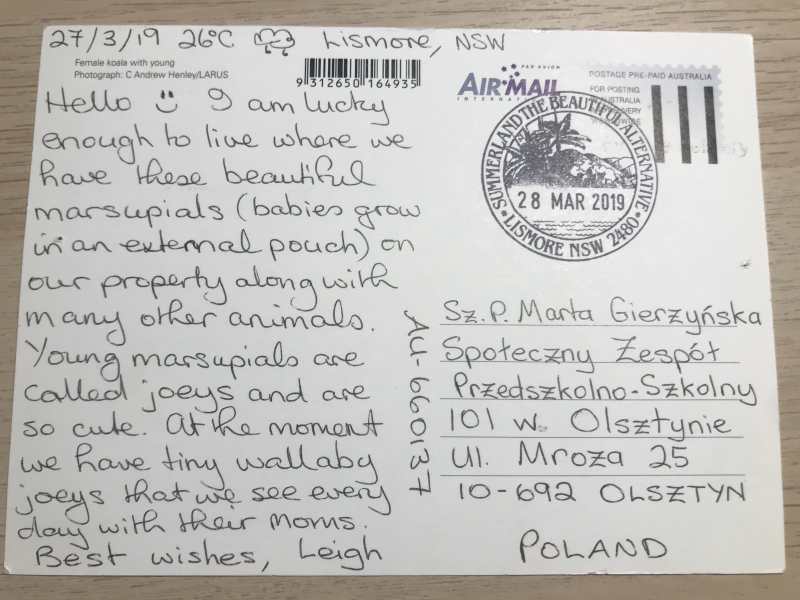 27/3/19 26°C Lismore, NSW
Female koala with young
Photograph: C Andrew Henley/LARUS
9 312650 164935
Hello I am lucky
enough to live where we
have these beautiful
marsupials (babies grow
in an external pouch) on
our property along with
many other animals.
Young marsupials are
called joeys and are
so cute. At the moment
we have tiny wallaby
joeys that we see every
day with their moms.
Best wishes, Leigh
PAR AVION
AIR MAIL
INTERNATIONAL
POSTAGE PRE-PAID AUSTRALIA
FOR POSTING
AUSTRALIA
SUMMERLAND THE BEAUTIFUL ALTERNATIVE
28 MAR 2019
LISMORE NSW 2480
AU-660137
Sz. P. Marta Gierzyńska
Społeczny Zespół
Przedszkolno-Szkolny
101 w. Olsztynie
ul. Mroza 25
10-692 OLSZTYN
POLAND